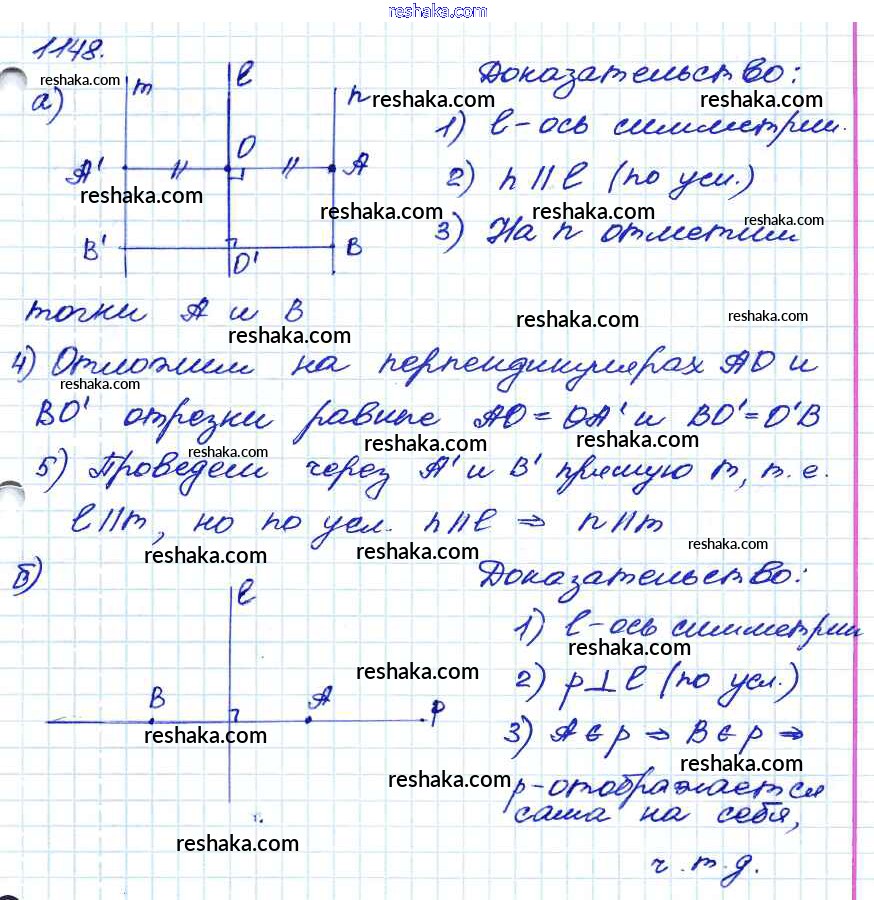 reshaka.com
1148.
reshaka.com
а)
m
l
n
O
A'
A
B'
O'
B
reshaka.com
reshaka.com
reshaka.com
Доказательство:
reshaka.com
1) l-ось симметрии.
2) n || l (по усл.)
reshaka.com
3) На n отметим
точки A и B
reshaka.com
reshaka.com
reshaka.com
4) Отложим на перпендикулярах AO и
reshaka.com
BO' отрезки равные AO = OA' и BO' = O'B
reshaka.com
reshaka.com
reshaka.com
5) Проведем через A' и B' прямую m, т.е.
l || m, но по усл. n || l ⇒ n || m
reshaka.com
reshaka.com
reshaka.com
б)
l
B
A
p
reshaka.com
reshaka.com
Доказательство:
1) l-ось симметрии
reshaka.com
2) p ⊥ l (по усл.)
3) A ∈ p ⇒ B ∈ p ⇒
reshaka.com
reshaka.com
p-отображается
сама на себя,
reshaka.com
ч.т.д.